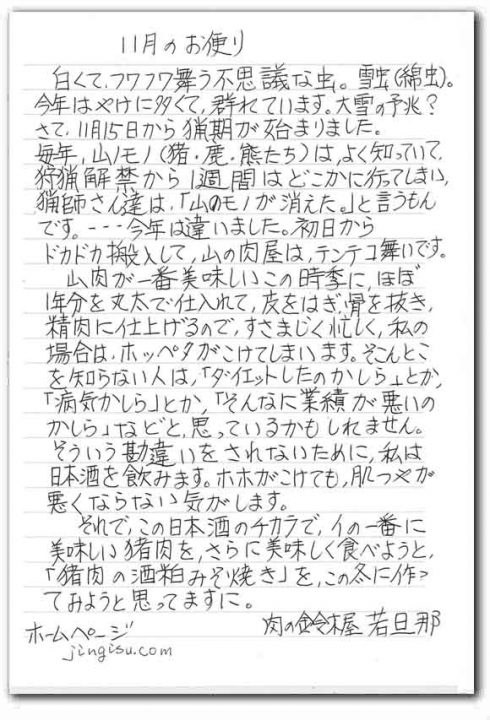 11月のお便り
白くて、フワフワ舞う不思議な虫。雪虫(綿虫)。
今年はやけに多くて、群れています。大雪の予兆?
さて、11月15日から猟期が始まりました。
毎年、山ノモノ(猪・鹿・熊たち)は、よく知っていて、
狩猟解禁から1週間はどこかに行ってしまい、
猟師さん達は、「山のモノが消えた。」と言うもん
です。---今年は違いました。初日から
ドカドカ搬入して、山の肉屋は、テンテコ舞いです。
山肉が一番美味しいこの時季に、ほぼ
1年分を丸太で仕入れて、皮をはぎ、骨を抜き、
精肉に仕上げるので、すさまじく忙しく、私の
場合は、ホッペタがこけてしまいます。そこんとこ
を知らない人は、「ダイエットしたのかしら」とか、
「病気かしら」とか、「そんなに業績が悪いの
かしら」などと、思っているかもしれません。
そういう勘違いをされないために、私は
日本酒を飲みます。ホホがこけても、肌つやが
悪くならない気がします。
それで、この日本酒のチカラで、イの一番に
美味しい猪肉を、さらに美味しく食べようと、
「猪肉の酒粕みそ焼き」を、この冬に作っ
てみようと思ってますに。
肉の鈴木屋 若旦那
ホームページ
jingisu.com